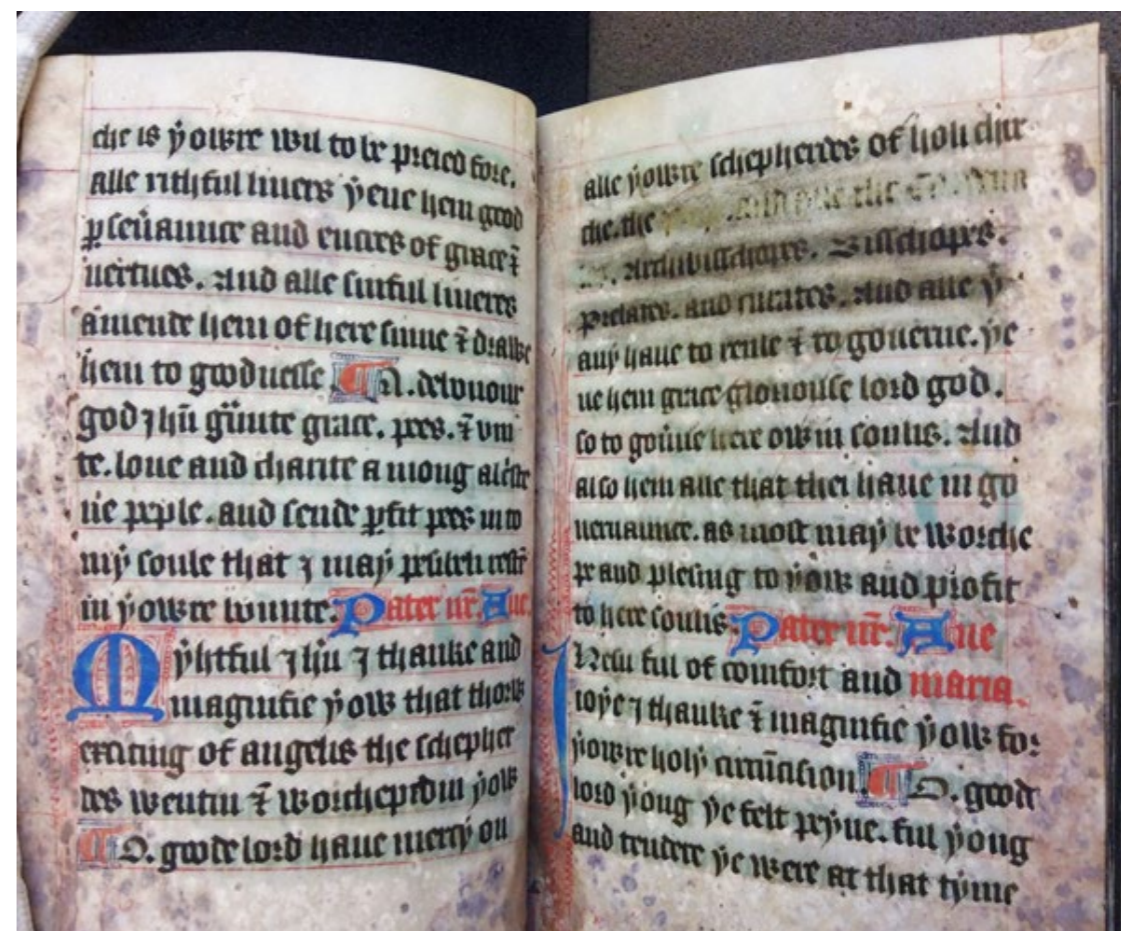 che is ẏowre wil to be preied fore.
alle rithful liuers ẏeue hem good
ꝑseuãunce and encres of grace ⁊̃
uertues. And alle sinful liueres
amende hem of here sinne ⁊̃ drawe
hem to goodnesse ¶ A. delouour
god Jhũ graunte grace. pees. ⁊̃ vni
te. loue and charite a mong al criste
ne peple. and sende ꝑfit pees in to
mẏ soule that J maẏ
in ẏowre Pater nr̃ Aue
Mẏhtful Jhũ J thanke and
magnifie ẏow that thorw
exciting of angelis the schepher
des wentin ⁊̃ worchepedin ẏow
¶ O. goode lord haue mercẏ on
alle ẏowre schepherdes of holi chir
che. the and alle the
Archibisschopes. Bisschopes.
prelates. and curates. And alle ẏͭ
anẏ haue to reule ⁊̃ to gouerne. ẏe
ue hem grace gloriouse lord god.
so to gou̾ne here owin soulis. And
also hem alle that thei haue in go
uernaunce. as most maẏ be worche
pe and plesing to ẏow and profit
to here soulis Pater nr̃ Aue
Jhesu ful of comfort and maria.
ioẏe J thanke ⁊̃ magnifie ẏow for
ẏowre holẏ circũcision ¶ O. goode
lord ẏoung ẏe felt peẏne. ful ẏoung
and tendere ẏe were at that tẏme